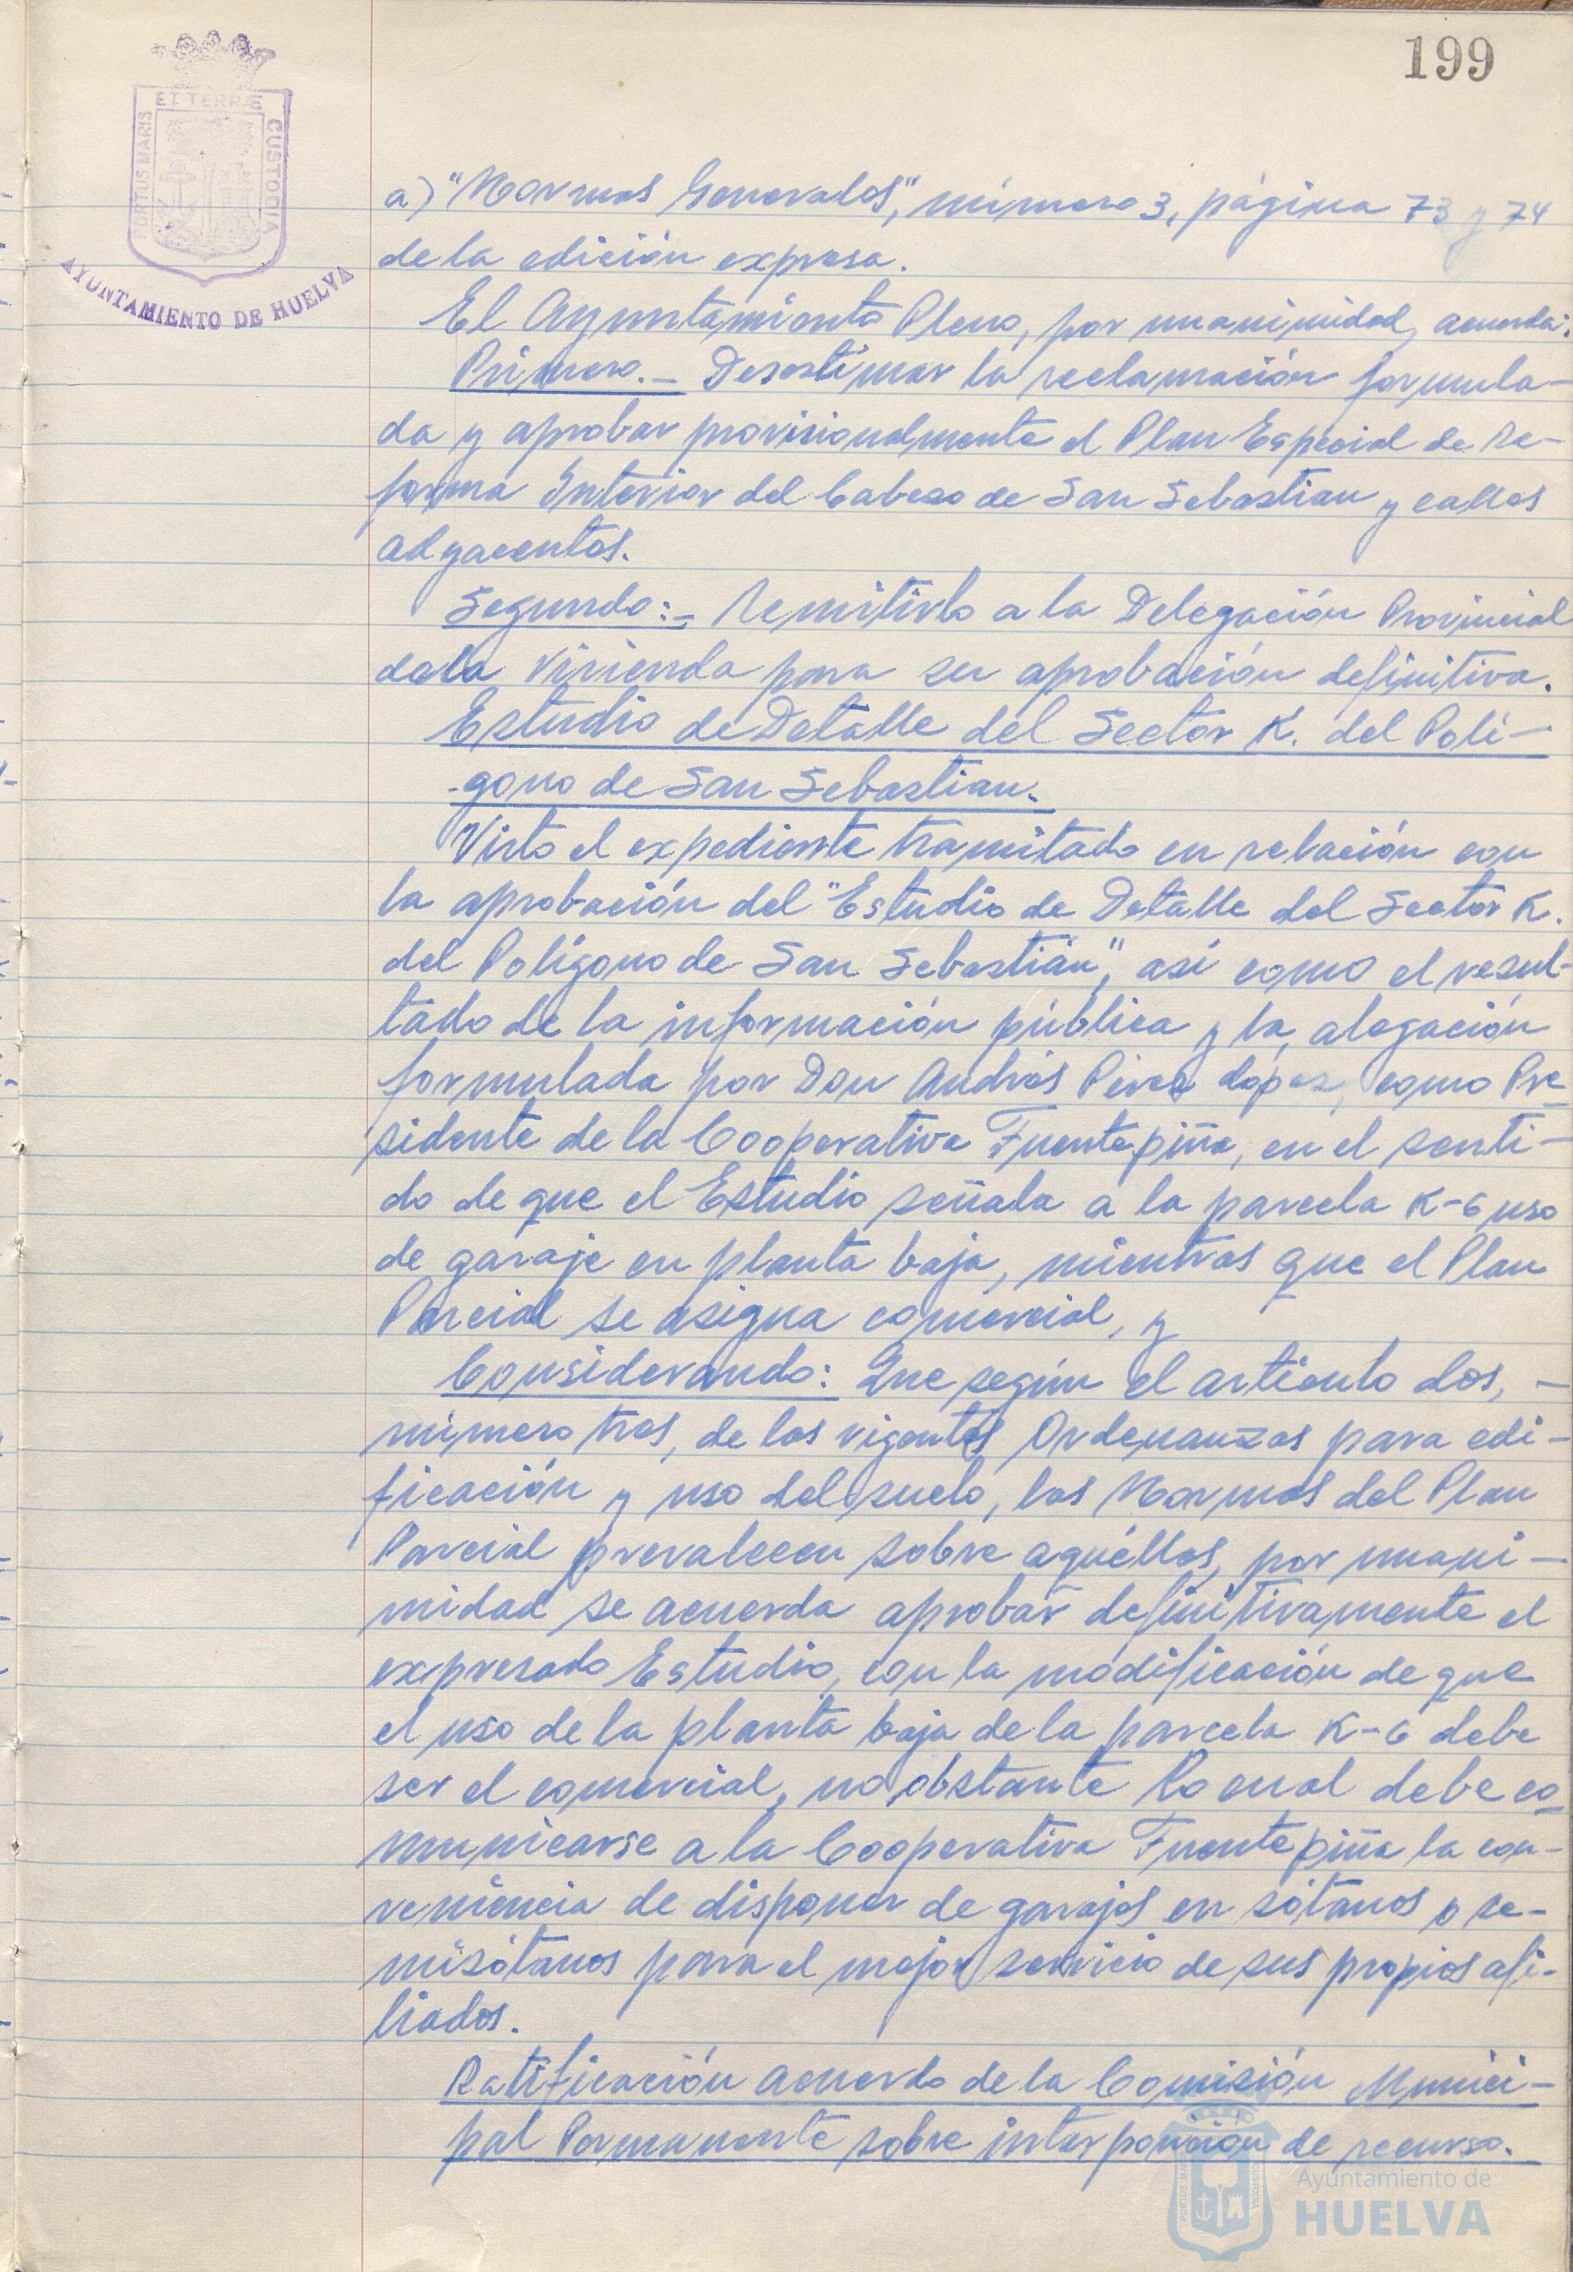 199
PORTUS MARIS
ET TERRÆ
CUSTODIA
AYUNTAMIENTO DE HUELVA
a) "Normas Generales", número 3, página 73 y 74
de la edición expresa.
El Ayuntamiento Pleno, por unanimidad, acuerda:
Primero.- Desestimar la reclamación formula-
da y aprobar provisionalmente el Plan Especial de Re-
forma Interior del Cabezo de San Sebastian y calles
adyacentes.
Segundo:- Remitirlo a la Delegación Provincial
de la Vivienda para su aprobación definitiva.
Estudio de Detalle del Sector K. del Polí-
-gono de San Sebastian.
Visto el expediente tramitado en relación con
la aprobación del "Estudio de Detalle del Sector K.
del Polígono de San Sebastián", así como el resul-
tado de la información pública y la alegación
formulada por Don Andrés Pérez López, como Pre-
sidente de la Cooperativa Fuentepiña, en el senti-
do de que el Estudio señala a la parcela K-6 uso
de garaje en planta baja, mientras que el Plan
Parcial se asigna comercial, y
Considerando: Que según el artículo dos, -
número tres, de las vigentes Ordenanzas para edi-
ficación y uso del suelo, las Normas del Plan
Parcial prevalecen sobre aquéllas, por unani-
midad se acuerda aprobar definitivamente el
expresado Estudio, con la modificación de que
el uso de la planta baja de la parcela K-6 debe
ser el comercial, no obstante lo cual debe co-
municarse a la Cooperativa Fuentepiña la con-
veniencia de disponer de garajes en sótanos o se-
misótanos para el mejor servicio de sus propios afi-
liados.
Ratificación acuerdo de la Comisión Munici-
pal Permanente sobre interposición de recurso.
Ayuntamiento de
HUELVA